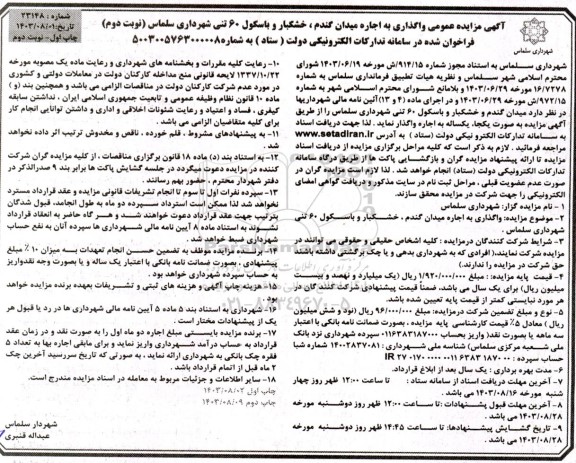 شماره : ۲۳۱۴۸
تاریخ:۱۴۰۳/۰۸/۰۱
چاپ اول - نوبت دوم
شهرداری سلماس
آگهی مزایده عمومی واگذاری به اجاره میدان گندم ، خشگبار و باسکول ۶۰ تنی شهرداری سلماس (نوبت دوم)
فراخوان شده در سامانه تدارکات الکترونیکی دولت ( ستاد ) به شماره ۵۰۰۳۰۰۵۷۶۳۰۰۰۰۰۸
شهرداری سلماس به استناد مجوز شماره ۹۱۴/۱۵/ش مورخه ۱۴۰۳/۰۶/۱۹ شورای
محترم اسلامی شهر سلماس و نظریه هیات تطبیق فرمانداری سلماس به شماره
۱۶/۷۲۷۸ مورخه ۱۴۰۳/۰۶/۲۹ و بلامانع شورای محترم اسلامی شهر به شماره
۹۷۲/۱۵/ش مورخه ۱۴۰۳/۰۶/۲۹ و در اجرای ماده (۴ و ۱۳) آئین نامه مالی شهرداریها
در نظر دارد میدان گندم و خشکبار و باسکول ۶۰ تنی شهرداری سلماس را از طریق
آگهی مزایده به صورت یکجا، یکساله به اجاره واگذار نماید. لذا جهت دریافت اسناد
به سامانه تدارکات الکترونیکی دولت (ستاد ) به آدرس www.setadiran.ir
مراجعه فرمائید . لازم به ذکر است که کلیه مراحل برگزاری مزایده از دریافت اسناد
مزایده تا ارائه پیشنهاد مزایده گران و بازگشایی پاکت ها از طریق درگاه سامانه
تدارکات الکترونیکی دولت (ستاد) انجام خواهد شد. لذا لازم است مزایده گران در
صورت عدم عضویت قبلی ، مراحل ثبت نام در سایت مذکور و دریافت گواهی امضای
الکترونیکی را جهت شرکت در مزایده محقق سازند.
۱ - نام مزایده گزار: شهرداری سلماس
۲- موضوع مزایده: واگذاری به اجاره میدان گندم ، خشکبار و باسکول ۶۰ تنی
شهرداری سلماس .
۳- شرایط شرکت کنندگان درمزایده : کلیه اشخاص حقیقی و حقوقی می توانند در
مزایده شرکت نمایند، (افرادی که به شهرداری بدهی و یا چک برگشتی داشته باشند
حق شرکت در مزایده را ندارند.)
۴- قیمت پایه مزایده : مبلغ ۱/۹۲۰/۰۰۰/۰۰۰ ریال (یک میلیارد و نهصد و بیست
میلیون ریال) برای یک سال می باشد، ضمناً قیمت پیشنهادی شرکت کنند گان در
هر مورد نبایستی کمتر از قیمت پایه تعیین شده باشد.
۵- نوع و مبلغ تضمین شرکت درمزایده: مبلغ ۹۶/۰۰۰/۰۰۰ ریال (نود و شش میلیون
ریال ) معادل ۵٪ قیمت کارشناسی پایه مزایده ، بصورت ضمانت نامه بانکی با اعتبار
سه ماهه یا بصورت نقد( واریز بحساب ۰۱۱۶۳۸۳۱۸۷۰۰۰ سپرده شهرداری نزد بانک
ملی شعبه مرکزی سلماس) شناسه ملی شهرداری : ۱۴۰۰۲۸۳۷۰۸۱ شماره شبا
حساب سپرده : IR ۲۷۰۱۷۰۰۰۰۰۰۰۱۱۶۳۸۳۱۸۷۰۰۰
۶- مدت بهره برداری : یک سال بعد از ابلاغ قرارداد.
۷- آخرین مهلت دریافت اسناد از سامانه ستاد : تا ساعت ۱۲:۰۰ ظهر روز چهار
شنبه مورخه ۱۴۰۳/۰۸/۱۶ می باشد .
۸- آخرین مهلت قبول پیشنهادات :تا ساعت ۱۲:۰۰ ظهر روز دوشنبه مورخه
۱۴۰۳/۰۸/۲۸ می باشد .
۹- تاریخ گشایش پیشنهادها: تا ساعت ۱۴:۴۵ ظهر روز دوشنبه مورخه
۱۴۰۳/۰۸/۲۸ می باشد .
۱۰- رعایت کلیه مقررات و بخشنامه های شهرداری و رعایت ماده یک مصوبه مورخه
۱۳۳۷/۱۰/۲۲ لایحه قانونی منع مداخله کارکنان دولت در معاملات دولتی و کشوری
در مورد عدم شرکت کارکنان دولت در مناقصات الزامی می باشد و همچنین بند (و )
ماده ۱۰ قانون نظام وظیفه عمومی و تابعیت جمهوری اسلامی ایران ، نداشتن سابقه
کیفری ، فساد و اعتیاد و رعایت شئونات اخلاقی و اداری و داشتن توانایی انجام کار
برای کلیه متقاضیان الزامی می باشد .
۱۱- به پیشنهادهای مشروط ، قلم خورده ، ناقص و مخدوش ترتیب اثر داده نخواهد
شد.
۱۲- به استناد بند (د) ماده ۱۸ قانون برگزاری مناقصات ، از کلیه مزایده گران شرکت
کننده در مزایده دعوت میگردد در جلسه گشایش پاکت ها برابر بند ۹ صدرالذکر در
دفتر شهردار محترم ، حضور بهم رسانند .
۱۳- سپرده نفرات اول تا سوم تا انجام تشریفات قانونی مزایده و عقد قرارداد مسترد
نخواهد شد لذا ممکن است استرداد سپرده دو ماه به طول انجامد، قبول شدگان
بترتیب جهت عقد قرارداد دعوت خواهند شد و هر گاه حاضر به انعقاد قرارداد
نشوند به استناد ماده ۸ آیین نامه مالی شهرداری ها سپرده آنان به نفع حساب
شهرداری ضبط خواهد شد .
۱۴- برنده مزایده موظف به تضمین حسن انجام تعهدات به میزان ۱۰ ٪ مبلغ
پیشنهادی ، بصورت ضمانت نامه بانکی با اعتبار یک ساله و یا بصورت وجه نقدواریز
به حساب سپرده شهرداری خواهد بود .
۱۵- هزینه چاپ آگهی و هزینه های ثبتی و تشریفات بعهده برنده مزایده خواهد
بود.
۱۶- شهرداری به استناد بند ۵ ماده ۵ آیین نامه مالی شهرداری ها در رد یا قبول هر
یک از پیشنهادات مختار است .
۱۷- برنده مزایده بایستی مبلغ اجاره دو ماه اول را به صورت نقد و در زمان عقد
قرارداد به حساب درآمد شهرداری واریز نماید و برای مابقی اجاره بها به تعداد ۵
فقره چک بانکی به شهرداری ارائه نماید . به صورتی که تاریخ سررسید آخرین چک
۲ ماه قبل از اتمام قرارداد باشد .
۱۸- سایر اطلاعات و جزئیات مربوط به معامله در اسناد مزایده مندرج است.
چاپ اول ۱۴۰۳/۰۸/۰۲
چاپ دوم ۱۴۰۳/۰۸/۰۹
شهردار سلماس
عبداله قنبری
۰۲۱-۸۸۳۴۹۶۷۰-۵